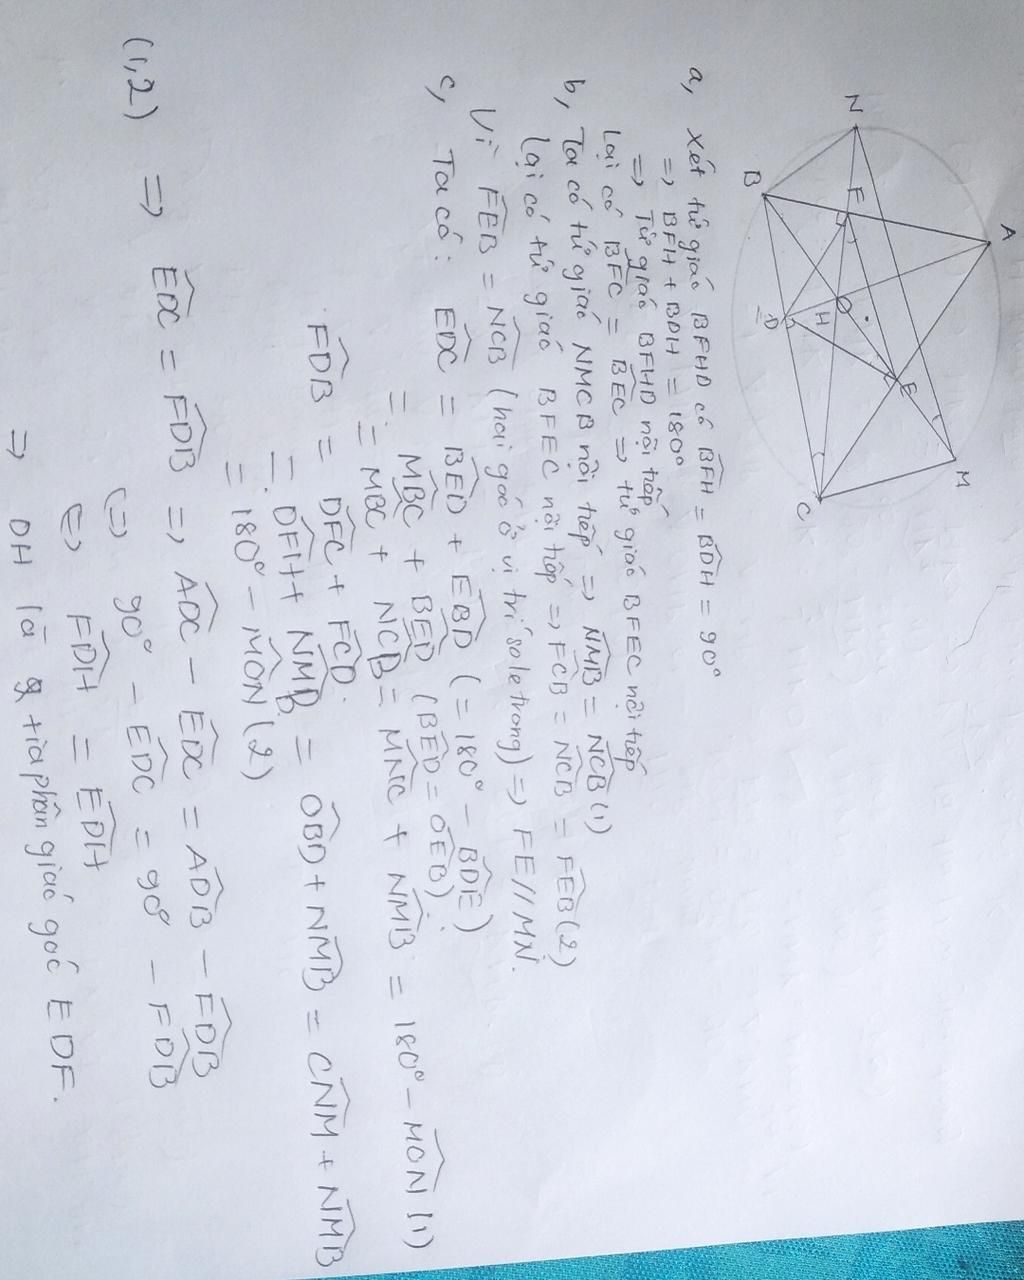 N
A
B
F
O
H
D
E
M
C
a, Xét tứ giác BFHD có BFH = BDH = 90°
=> BFH + BDH = 180°
=> Tứ giác BFHD nội tiếp
Lại có BFC = BEC => tứ giác BFEC nội tiếp
b, Ta có tứ giác NMCB nội tiếp => NMB = NCB (1)
Lại có tứ giác BFEC nội tiếp => FCB = NCB = FEB (2)
Vì FEB = NCB (hai góc ở vị trí so le trong) => FE // MN.
c, Ta có: EDC = BED + EBD (= 180° - BDE)
= MBC + BED (BED = OEB).
= MBC + NCB = MNC + NMB = 180° - MON (1)
FDB = DFC + FCD.
= DFH + NMB = OBD + NMB = CNM + NMB
= 180° - MON (2)
(1,2) => EDC = FDB => ADC - EDC = ADB - FDB
(=) 90° - EDC = 90° - FDB
(=) FDH = EDH
=> DH là tia phân giác góc EDF.